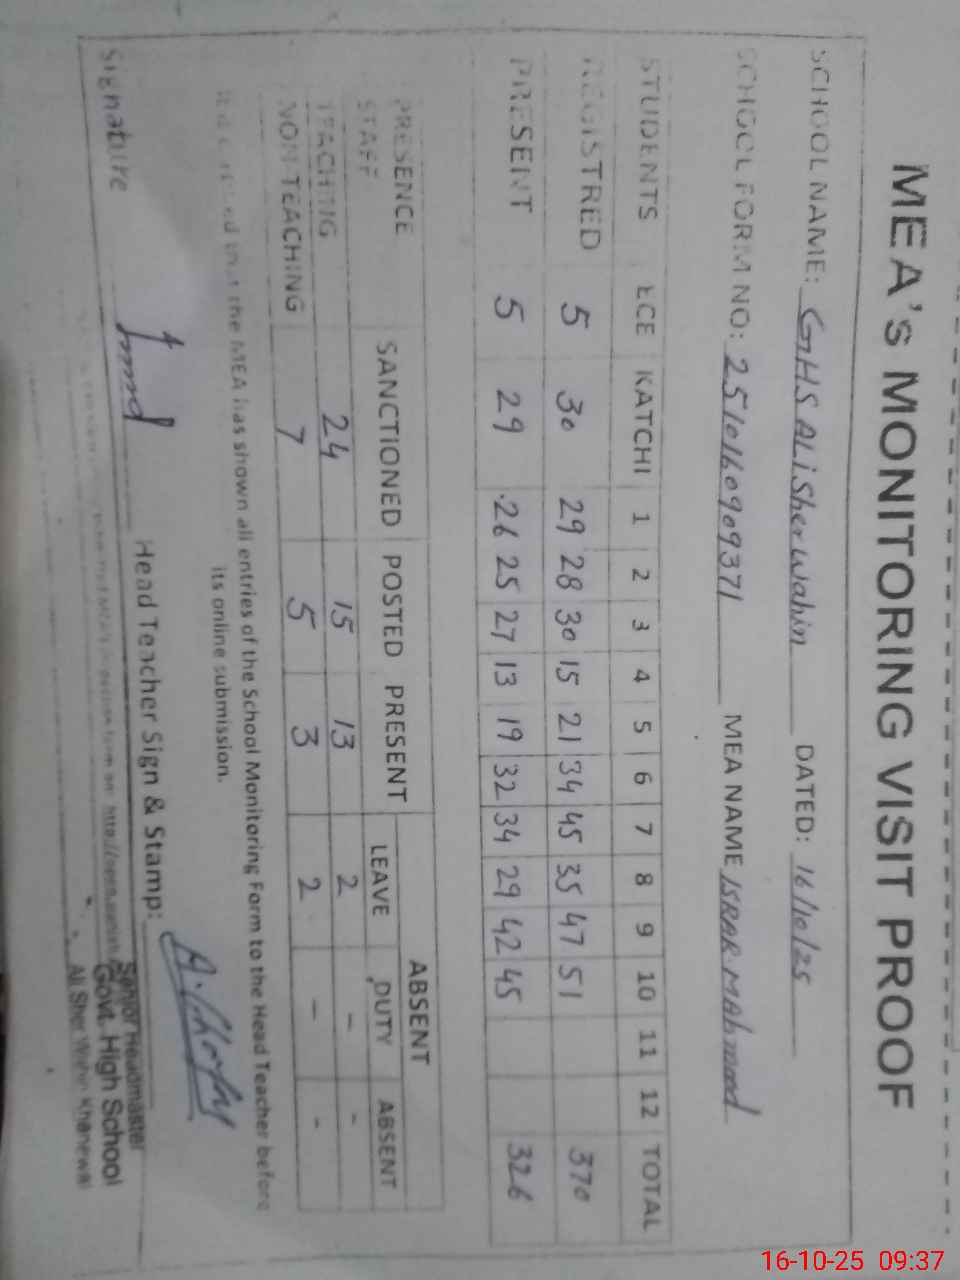 MEA's MONITORING VISIT PROOF
SCHOOL NAME: GHS ALi Sher Wahin DATED: 16/10/25
SCHOOL FORM NO: 2510160909371 MEA NAME ISRAR MAhmood
STUDENTS ECE KATCHI 1 2 3 4 5 6 7 8 9 10 11 12 TOTAL
REGISTRED 5 30 29 28 30 15 21 34 45 35 47 51 370
PRESENT 5 29 26 25 27 13 19 32 34 29 42 45 326
PRESENCE SANCTIONED POSTED PRESENT ABSENT
STAFF LEAVE DUTY ABSENT
TEACHING 24 15 13 2 - -
NON TEACHING 7 5 3 2 - -
that the MEA has shown all entries of the School Monitoring Form to the Head Teacher before
its online submission.
Signature Head Teacher Sign & Stamp:
Senior Headmaster
Govt. High School
Ali Sher Wahin Khanewal
16-10-25 09:37